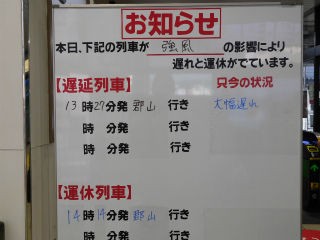 お知らせ
本日、下記の列車が 強風 の影響により
遅れと運休がでています。
【遅延列車】 只今の状況
13時27分発 郡山 行き 大幅遅れ
時 分発 行き
時 分発 行き
【運休列車】
14時14分発 郡山 行き
時 分発 行き